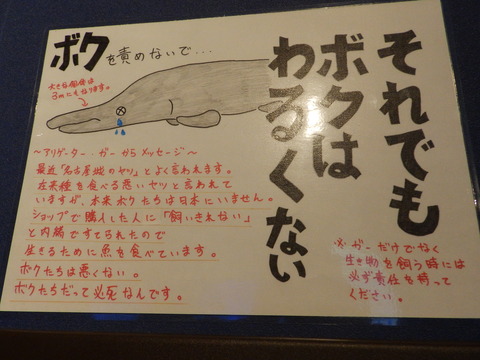 ボクを責めないで...
それでも
ボクは
わるくない
大きな個体は
3mにもなります。
～アリゲーター・ガーからメッセージ～
最近「名古屋城のヤツ」とよく言われます。
在来種を食べる悪いヤツと言われて
いますが、本来ボクたちは日本にいません。
ショップで購入した人に「飼いきれない」
と内緒ですてられたので
生きるために魚を食べています。
ボクたちは悪くない。
ボクたちだって必死なんです。
※ガーだけでなく
生き物を飼う時には
必ず責任を持って
ください。